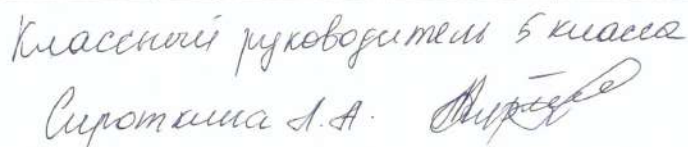 Классный руководитель 5 класса
Сироткина Л.А.